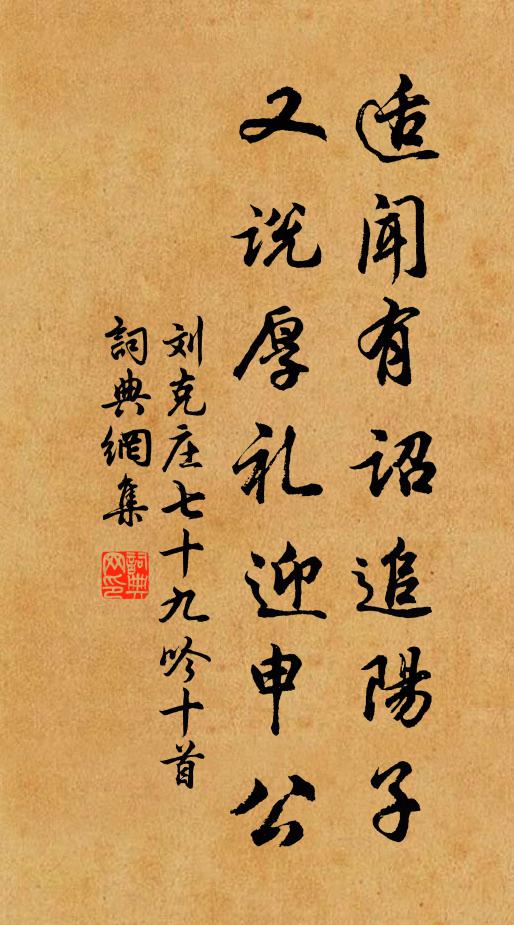 适闻有诏追陽子
又说厚礼迎申公
刘克庄七十九吟十首
詞典網集
詞典网印